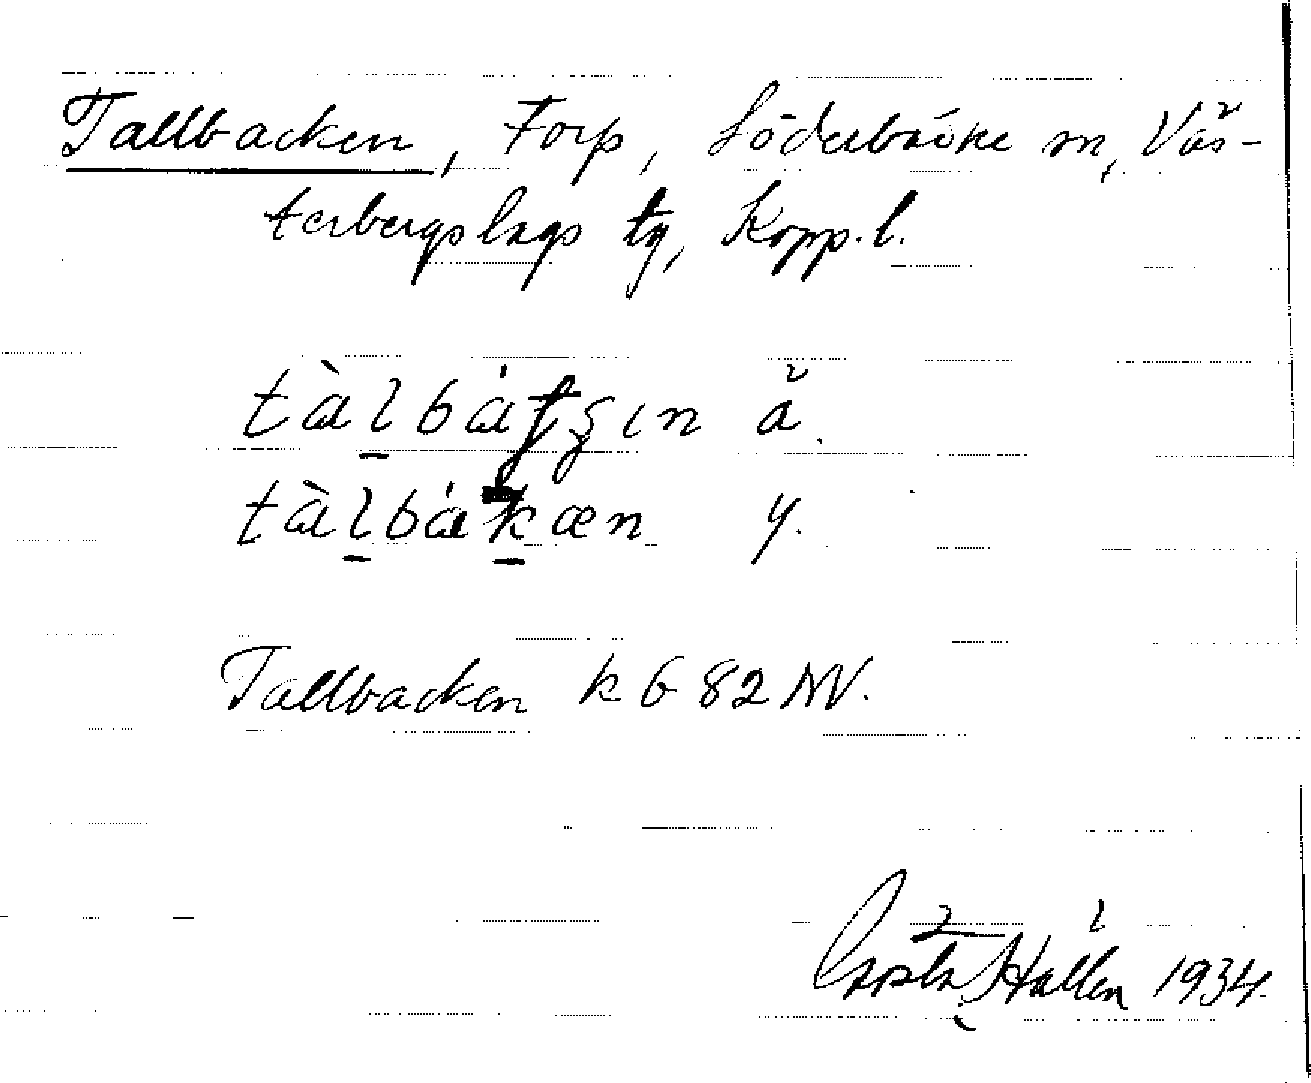 Tallbacken, Torp, Söderbärke sn, Väs-
terbergslags tg, Kopp. l.
tàlbátʂın ä.
tàlbákæn y.
Tallbacken k 6 82 NV.
Gösta Hallén 1934.